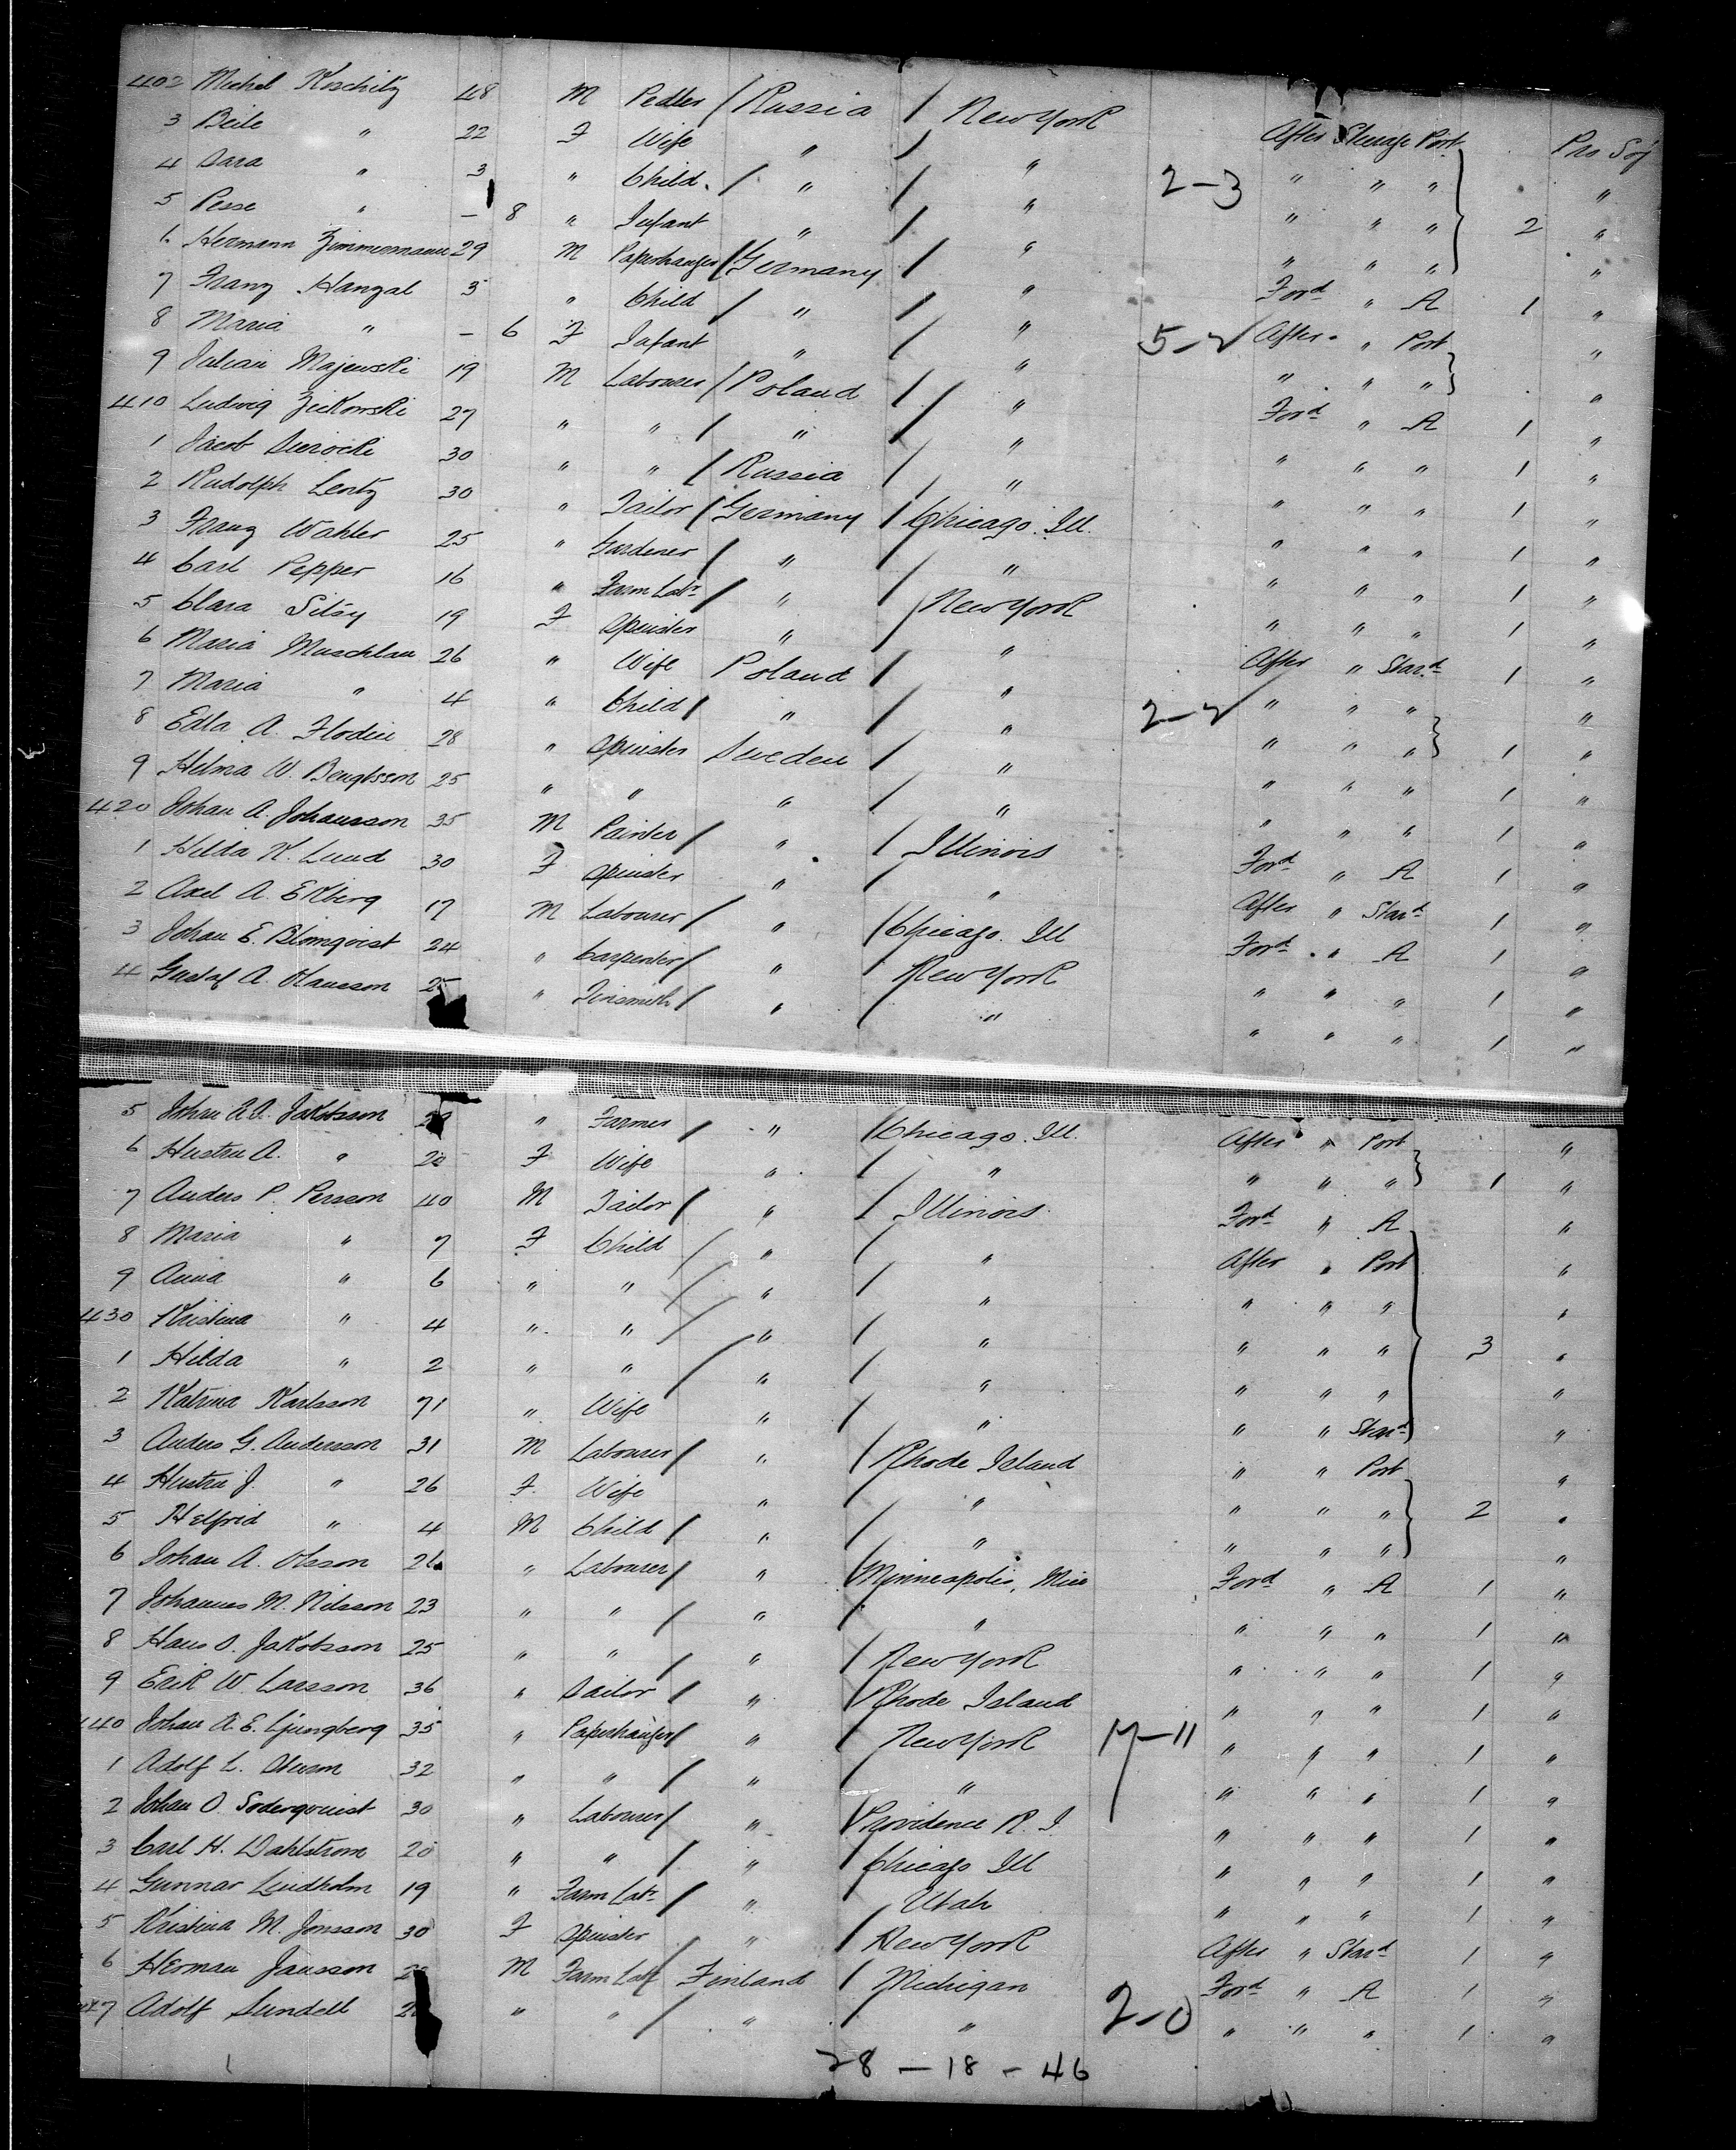 402 Michel Koschitz 48 M Pedler / Russia / New York After Steerage Port Pro Soj
3 Beile " 22 F Wife " / " " " " "
4 Sara " 3 " Child / " / " 2-3 " " " 2 "
5 Pesse " — 8 " Infant " / " " " " "
6 Hermann Zimmermann 29 M Paperhanger / Germany / " Ford " A 1 "
7 Franz Hanzal 3 " Child / " / " 5-2 After " Port "
8 Maria " — 6 F Infant " / " " " " "
9 Julian Majewski 19 M Labourer / Poland / " Ford " A 1 "
410 Ludwig 27 " " / " / " " " " 1 "
1 Jacob 30 " " / Russia / " " " " 1 "
2 Rudolph Lentz 30 " Tailor / Germany / Chicago. Ill. " " " 1 "
3 Franz Wahler 25 " Gardener / " / " " " " 1 "
4 Carl Pepper 16 " Farm Labr / " / New York " " " 1 "
5 Clara 19 F Spinster " / " After " Stard 1 "
6 Maria Muschlau 26 " Wife Poland / " " " " "
7 Maria " 4 " Child / " / " 2-2 " " " 1 "
8 Edla A. Flodin 28 " Spinster Sweden / " " " " 1 "
9 Helma W. Bengtsson 25 " " " / " " " " 1 "
420 Johan A. Johansson 35 M Painter / " / Illinois Ford " A 1 "
1 Hilda K. Lund 30 F Spinster " / " After " Stard 1 "
2 Axel A. Ekberg 17 M Labourer / " / Chicago. Ill Ford " A 1 "
3 Johan E. Blomqvist 24 " Carpenter / " / New York " " " 1 "
4 Gustaf A. Hansson 25 " Tinsmith / " / " " " " 1 "
5 Johan A.A. Jakobsson " Farmer / " / Chicago. Ill. After " Port "
6 Hustru A. " " F Wife " / " " " " 1 "
7 Anders P. Persson 40 M Tailor / " / Illinois Ford " A "
8 Maria " 7 F Child / " / " After " Port "
9 Anna " 6 " " / " / " " " " "
430 Kristina " 4 " " / " / " " " " 3 "
1 Hilda " 2 " " / " / " " " " "
2 Katrina Karlsson 71 " Wife " / " " " Stard "
3 Anders G. Andersson 31 M Labourer / " / Rhode Island " " Port "
4 Hustru J. " 26 F Wife " / " " " " 2 "
5 Helfrid " 4 M Child / " / " " " " "
6 Johan A. Olsson 26 " Labourer / " / Minneapolis, Min Ford " A 1 "
7 Johannes M. Nilsson 23 " " / " / " " " " 1 "
8 Hans O. Jakobsson 25 " " / " / New York " " " 1 "
9 Erik W. Larsson 36 " Sailor / " / Rhode Island " " " 1 "
440 Johan A. E. Ljungberg 35 " Paperhanger / " / New York 17-11 " " " 1 "
1 Adolf L. 32 " " / " / " " " " 1 "
2 Johan O. Soderqvist 30 " Labourer / " / Providence R. I. " " " 1 "
3 Carl H. Dahlstrom 20 " " / " / Chicago Ill " " " 1 "
4 Gunnar Lindholm 19 " Farm Labr / " / Utah " " " 1 "
5 Kristina M. Jonsson 30 F Spinster " / New York After " Stard 1 "
6 Herman Jansson M Farm Labr / Finland / Michigan Ford " A 1 "
447 Adolf Sundell " " / " " 2-0 " " " 1 "
28 - 18 - 46